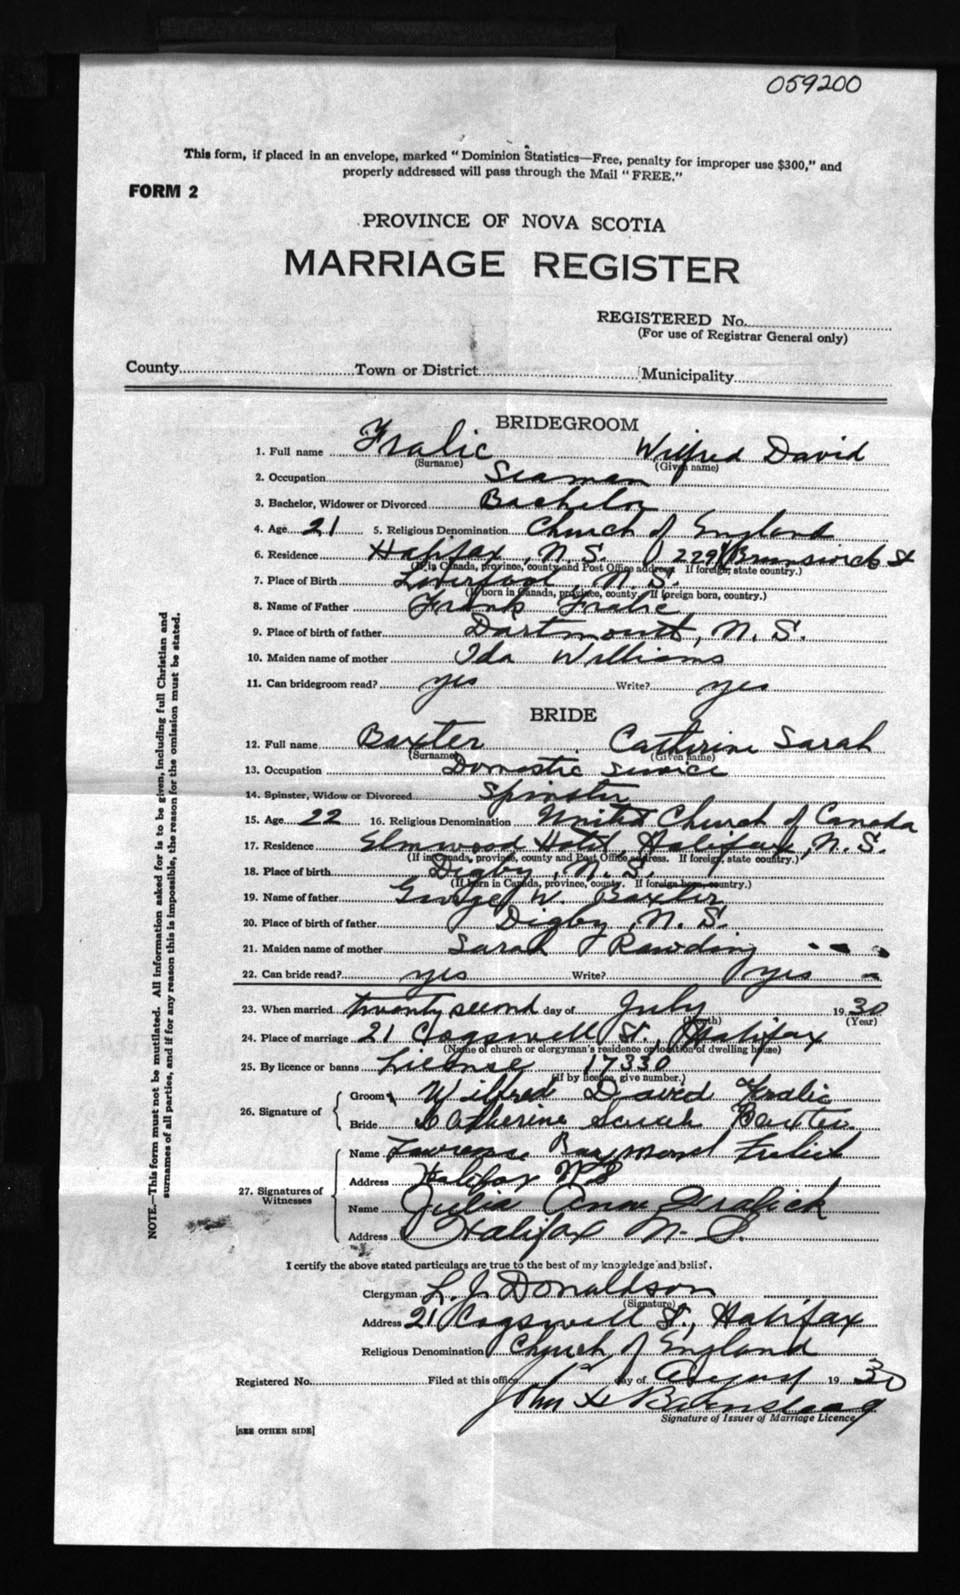 059200
This form, if placed in an envelope, marked "Dominion Statistics—Free, penalty for improper use $300," and
properly addressed will pass through the Mail "FREE."
FORM 2
PROVINCE OF NOVA SCOTIA
MARRIAGE REGISTER
REGISTERED No.
(For use of Registrar General only)
County Town or District Municipality
BRIDEGROOM
1. Full name Fralic Wilfred David
(Surname) (Given name)
2. Occupation Seaman
3. Bachelor, Widower or Divorced Bachelor
4. Age 21 5. Religious Denomination Church of England
6. Residence Halifax, N.S. Brunswick St
(If in Canada, province, county and Post Office address. If foreign, state country.)
7. Place of Birth Liverpool, N.S.
(If born in Canada, province, county. If foreign born, country.)
8. Name of Father Frank Fralic
9. Place of birth of father Dartmouth, N.S.
10. Maiden name of mother Ida Williams
11. Can bridegroom read? yes Write? yes
BRIDE
12. Full name Baxter Catherine Sarah
(Surname) (Given name)
13. Occupation Domestic Service
14. Spinster, Widow or Divorced Spinster
15. Age 22 16. Religious Denomination United Church of Canada
17. Residence Elmwood Hotel, Halifax, N.S.
(If in Canada, province, county and Post Office address. If foreign, state country.)
18. Place of birth Digby, N.S.
(If born in Canada, province, county. If foreign born, country.)
19. Name of father George W. Baxter
20. Place of birth of father Digby, N.S.
21. Maiden name of mother Sarah Rawding
22. Can bride read? yes Write? yes
23. When married twenty second day of July 1930
(Month) (Year)
24. Place of marriage 21 Cogswell St., Halifax
(Name of church or clergyman's residence or location of dwelling house)
25. By licence or banns License 17330
(If by licence, give number.)
26. Signature of Groom Wilfred David Fralic
Bride Catherine Sarah Baxter
27. Signatures of Witnesses
Name Raymond
Address Halifax N S
Name Julia Ann
Address Halifax N.S.
I certify the above stated particulars are true to the best of my knowledge and belief.
Clergyman L. J. Donaldson
(Signature)
Address 21 Cogswell St., Halifax
Religious Denomination Church of England
Registered No. Filed at this office 1st day of August 1930
John H
Signature of Issuer of Marriage Licence
[SEE OTHER SIDE]
NOTE.—This form must not be mutilated. All information asked for is to be given, including full Christian and
surnames of all parties, and if for any reason this is impossible, the reason for the omission must be stated.